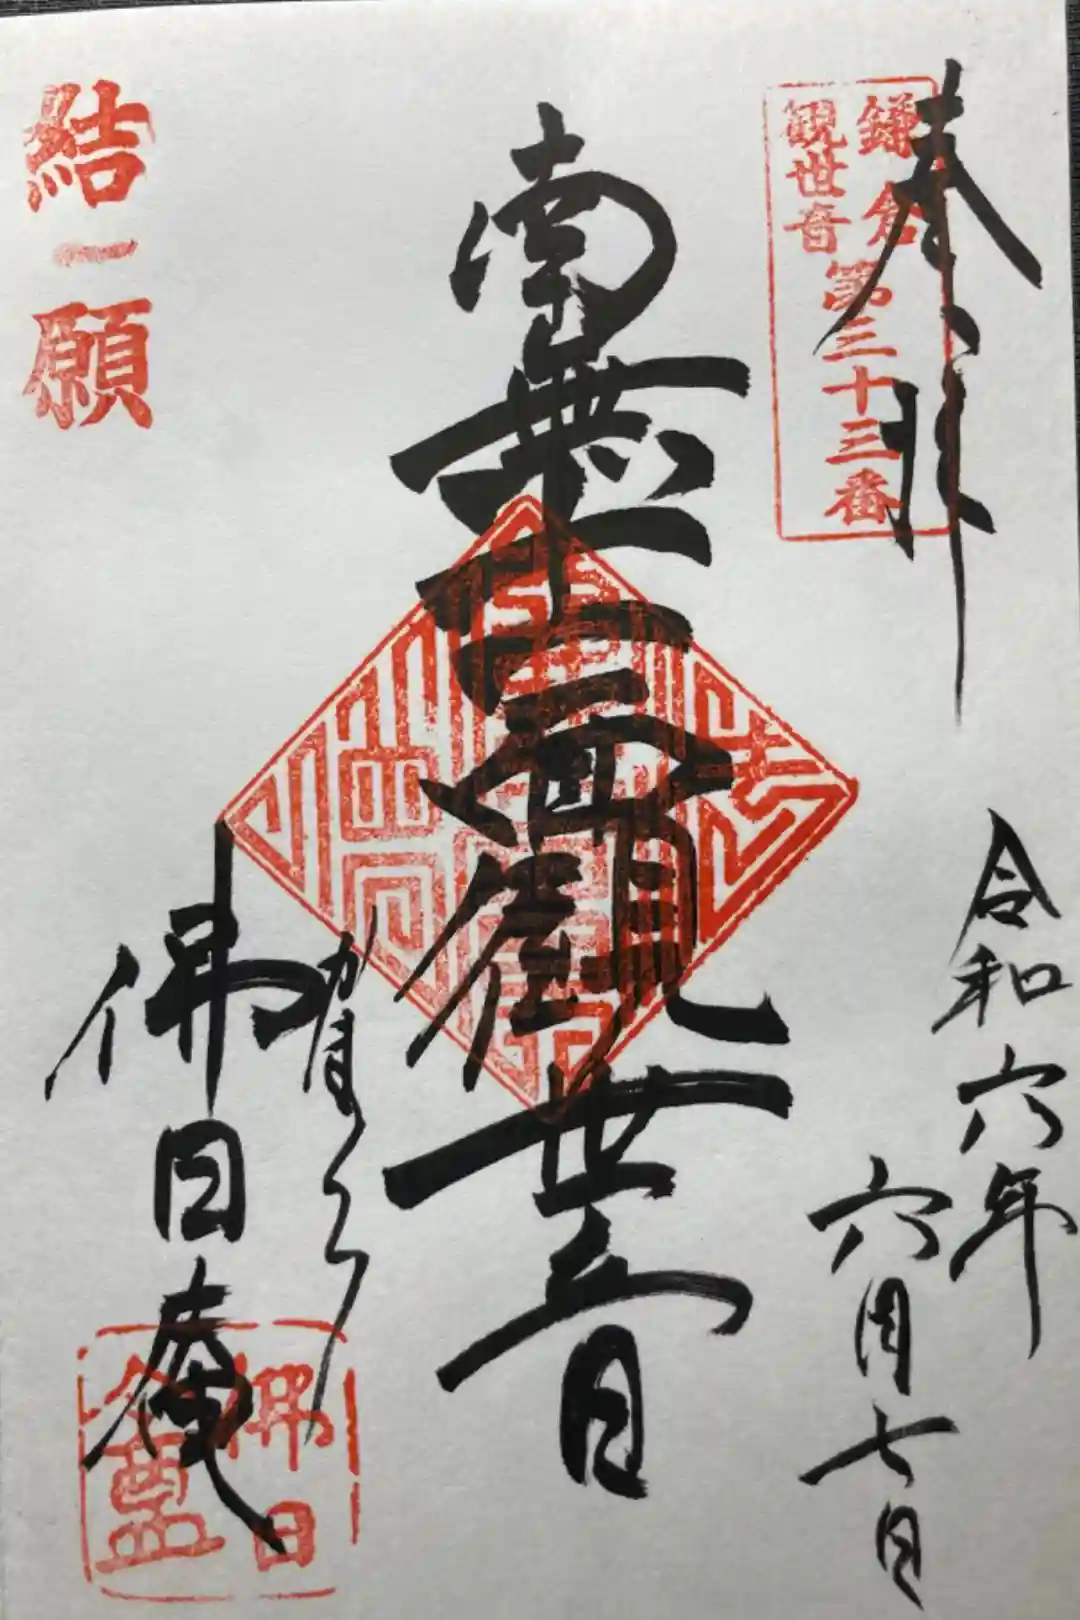 奉拝
鎌倉
観世音
第三十三番
令和六年
六月七日
南無
観世音
かまくら
佛日庵
結願
佛日